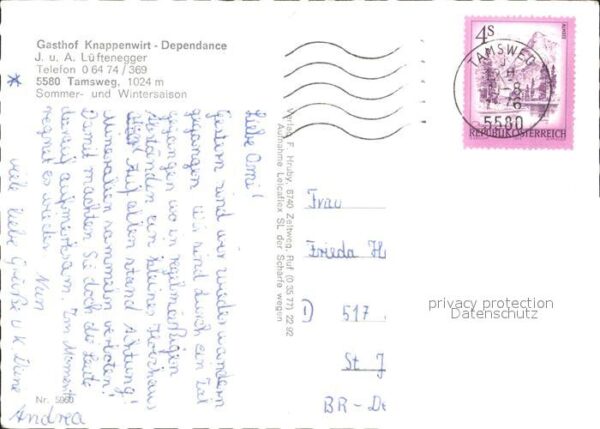 Gasthof Knappenwirt - Dependance
J. u. A. Lüftenegger
Telefon 0 64 74 / 369
5580 Tamsweg, 1024 m
Sommer- und Wintersaison
*
Liebe Omi!
Gestern sind wir wieder wandern
gegangen. Wir sind durch ein Tal
gegangen wo in regelmäßigen
Abständen ein kleines Hochhaus
Auf allen stand Achtung!
Mineralien sammeln verboten!
Damit machten Sie doch die Leute
darauf aufmerksam. Im Moment
regnet es wieder. Nun
viele liebe Grüße u. K Deine
Andrea
Nr. 5960
Verlag F. Hruby, 8740 Zeltweg, Ruf (0 35 77) 22 92
Aufnahme Leicaflex SL der Schärfe wegen
4S
REPUBLIK ÖSTERREICH
TAMSWEG
5580
Frau
Frieda H
D 517
St J
BR-De
privacy protection
Datenschutz